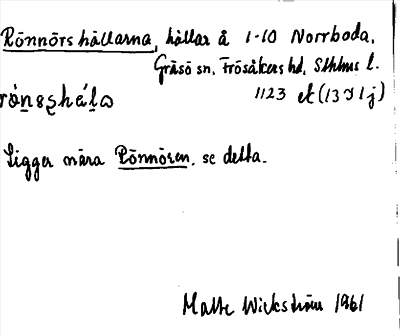 Rönnörshällarna, hällar å 1-10 Norrboda,
Gräsö sn, Frösåkers hd, Sthlms l.
1123 et (13 I 1 j)
Ligger nära Rönnören, se detta.
Matte Wickström 1961